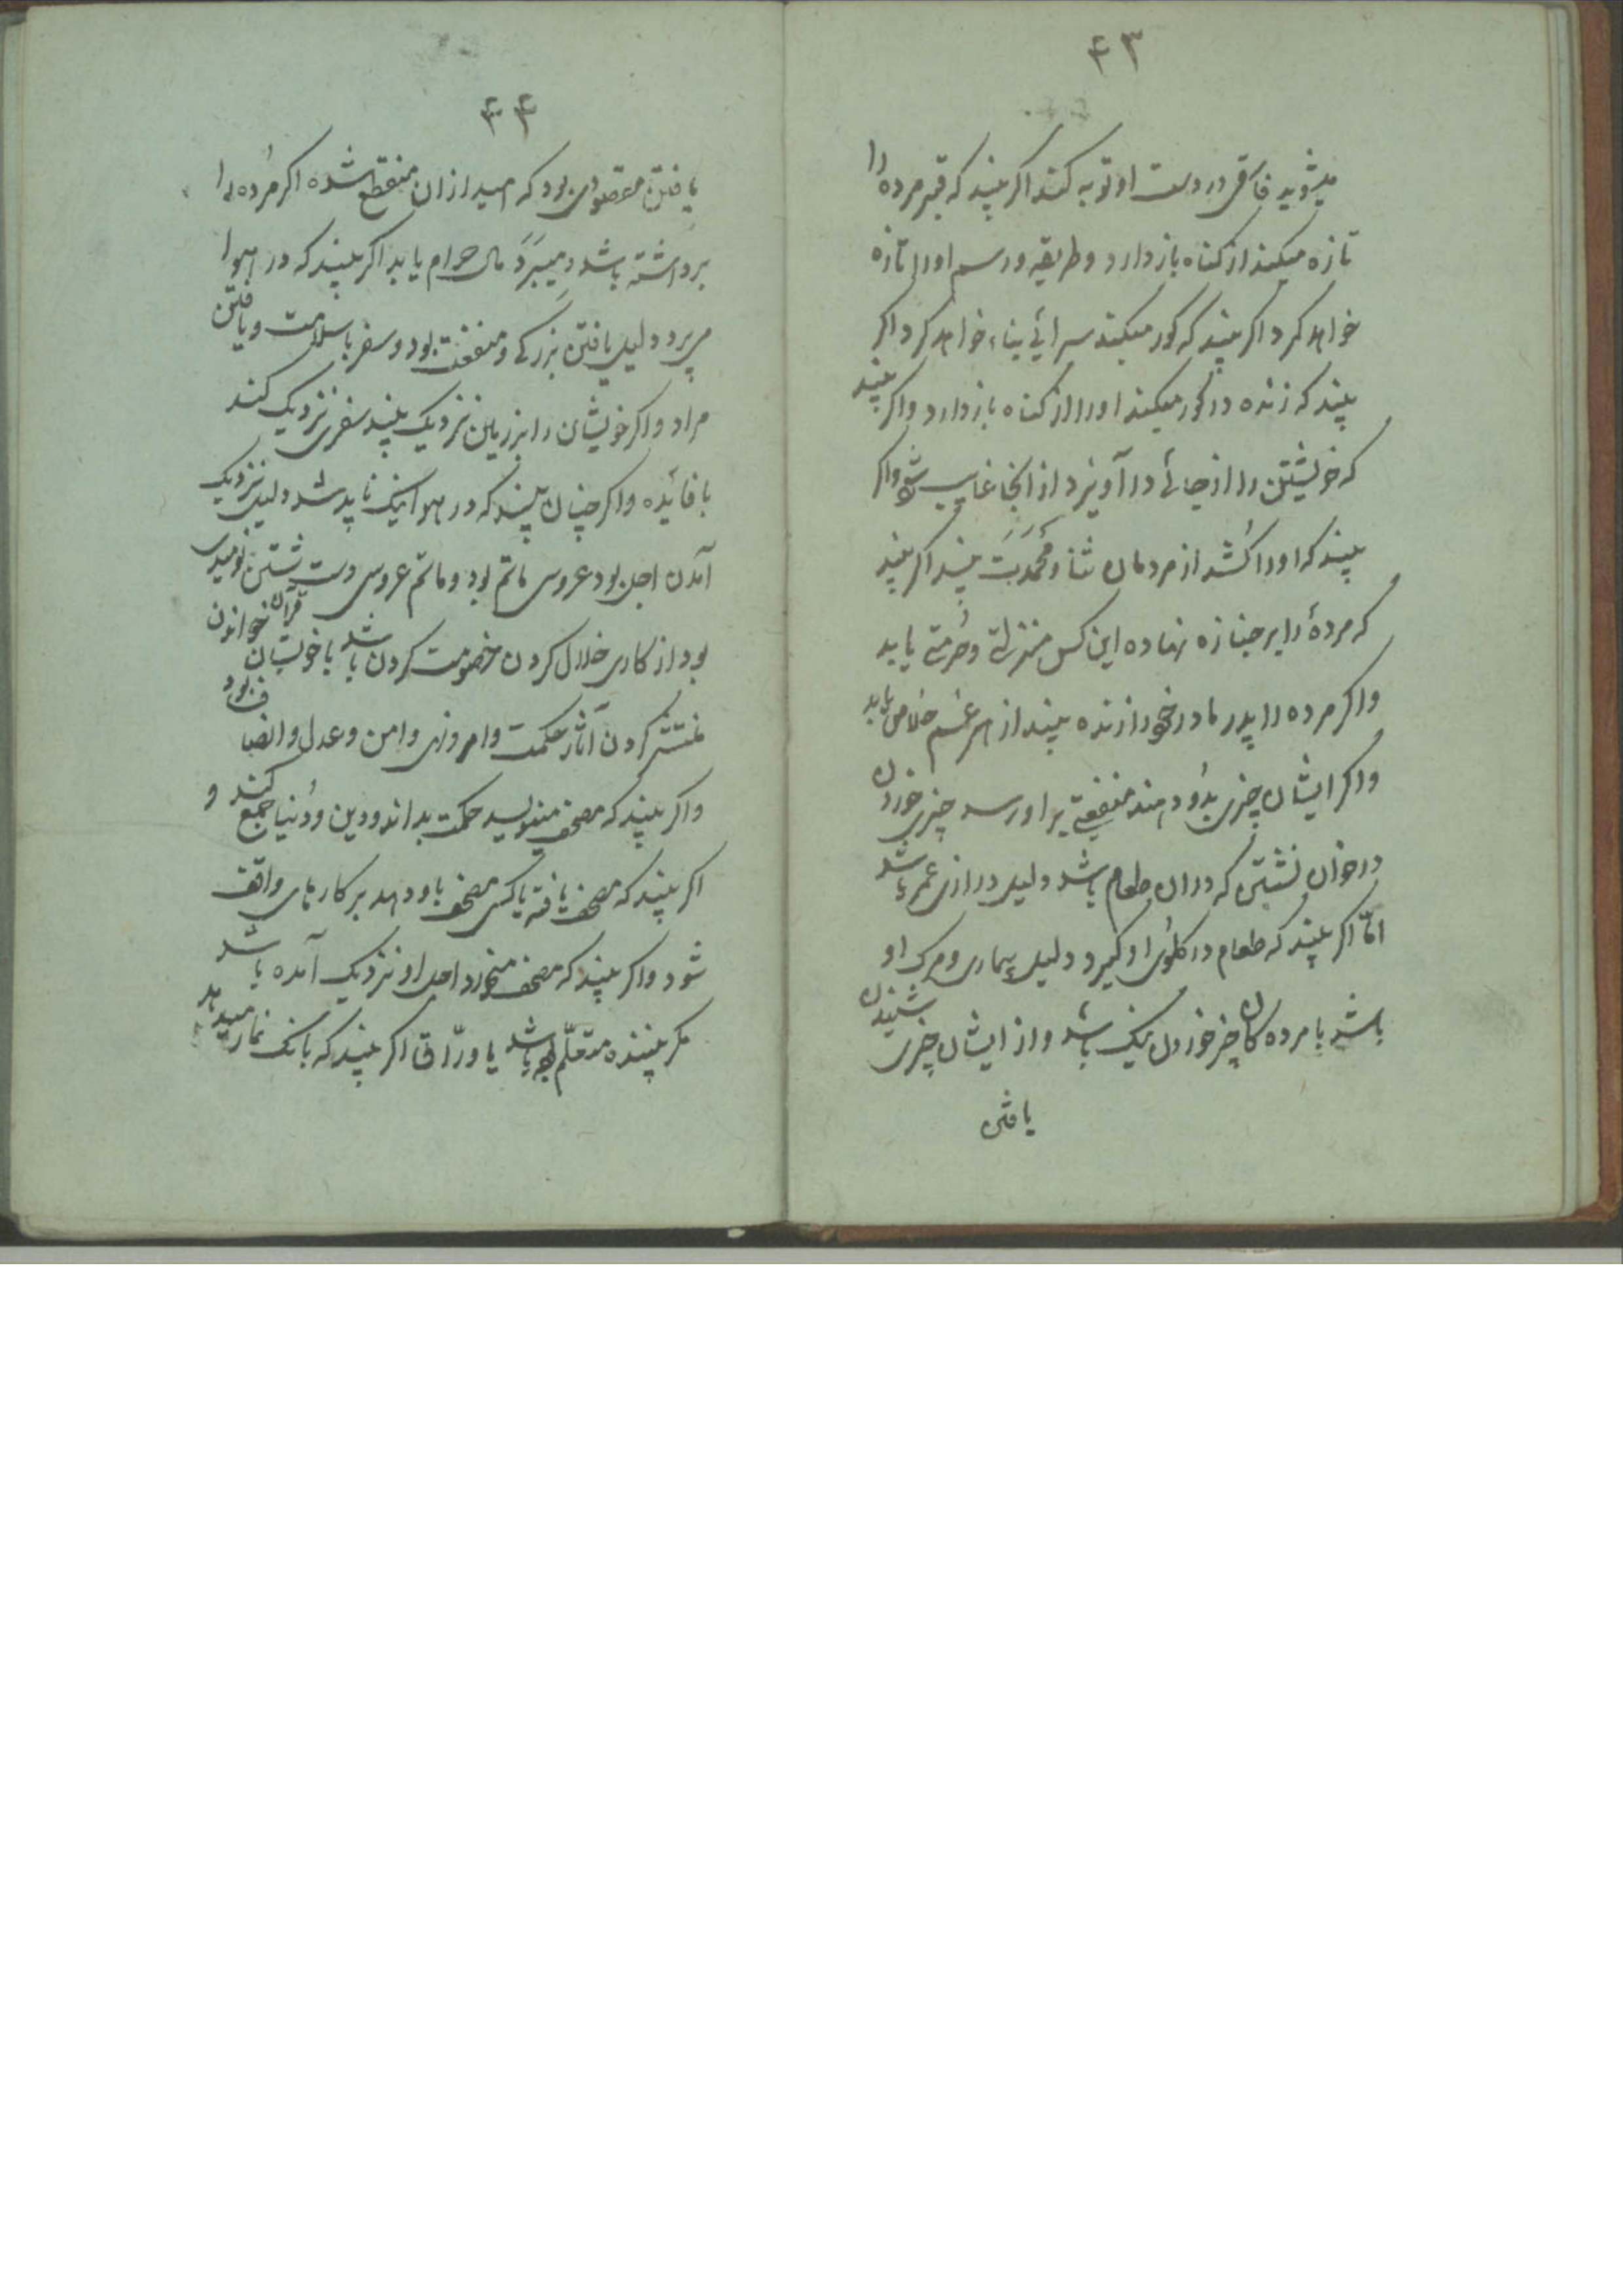 ۴۳
میشوید فاسقی در دست او توبه کند اگر بیند که قبر مرده را
تازه میکند از کناه باز دارد و طریقه و رسم او را تازه
خواهد کرد اگر بیند که کور میکند سرائی بناء خواهد کرد اگر
بیند که زنده در کور میکند او را از کناه باز دارد و اگر بیند
که خویشتن را از جائی در آویزد از انجا غایب شود و اگر
بیند که او را کشد از مردمان ثنا و محمدت بیند اگر بیند
که مردهٔ را بر جنازه نهاده این کس منزلتی و حُرمتی یابد
و اگر مرده را پدر مادر خود را زنده بیند از هر غم خلاص یابد
و اگر ایشان چیزی بدُو دهند منفعتی بر او رسد چیزی خوردن
در خوان نشستن که دران طعام باشد دلیل درازی عمر باشد
امّا اگر بیند که طعام در کلوی او کیرد دلیل بیماری و مرک او
باشد با مرده کان چیز خوردن نیک باشد و از ایشان چیزی شنیدن
یافتن
۴۴
یافتن مقصودی بود که امید از ان منقطع شده اگر مُرده را
برداشته باشد و میبَرَد مال حرام یابد اگر بیند که در هوا
می پرد دلیل یافتن بزرکی و منفعت بود و سفر با سلامت و یافتن
مراد و اگر خویشان را بزمین نزدیک بیند سفری نزدیک کند
با فائده و اگر چنان بیند که در هوا نیک ناپدید شد دلیل نزدیک
آمدن اجل بود عروسی ماتم بود و ماتم عروسی دست شستن نومیدی
بود از کاری خلال کردن خصومت کردن باشد با خویشان قرآن خواندن
منتشر کردن آثار حکمت و امر و نهی و امن و عدل و انصاف بود
و اگر بیند که مصحف مینویسد حکمت بداند و دین و دُنیا جمع کند و
اگر بیند که مصحف یافته یا کسی مصحف باو دهد بر کارهای واقف
شود و اگر بیند که مصحف میخورد اجل او نزدیک آمده باشد
مکر بیننده متعلّم باشد یا ورّاق اگر بیند که بانک نماز میدهد